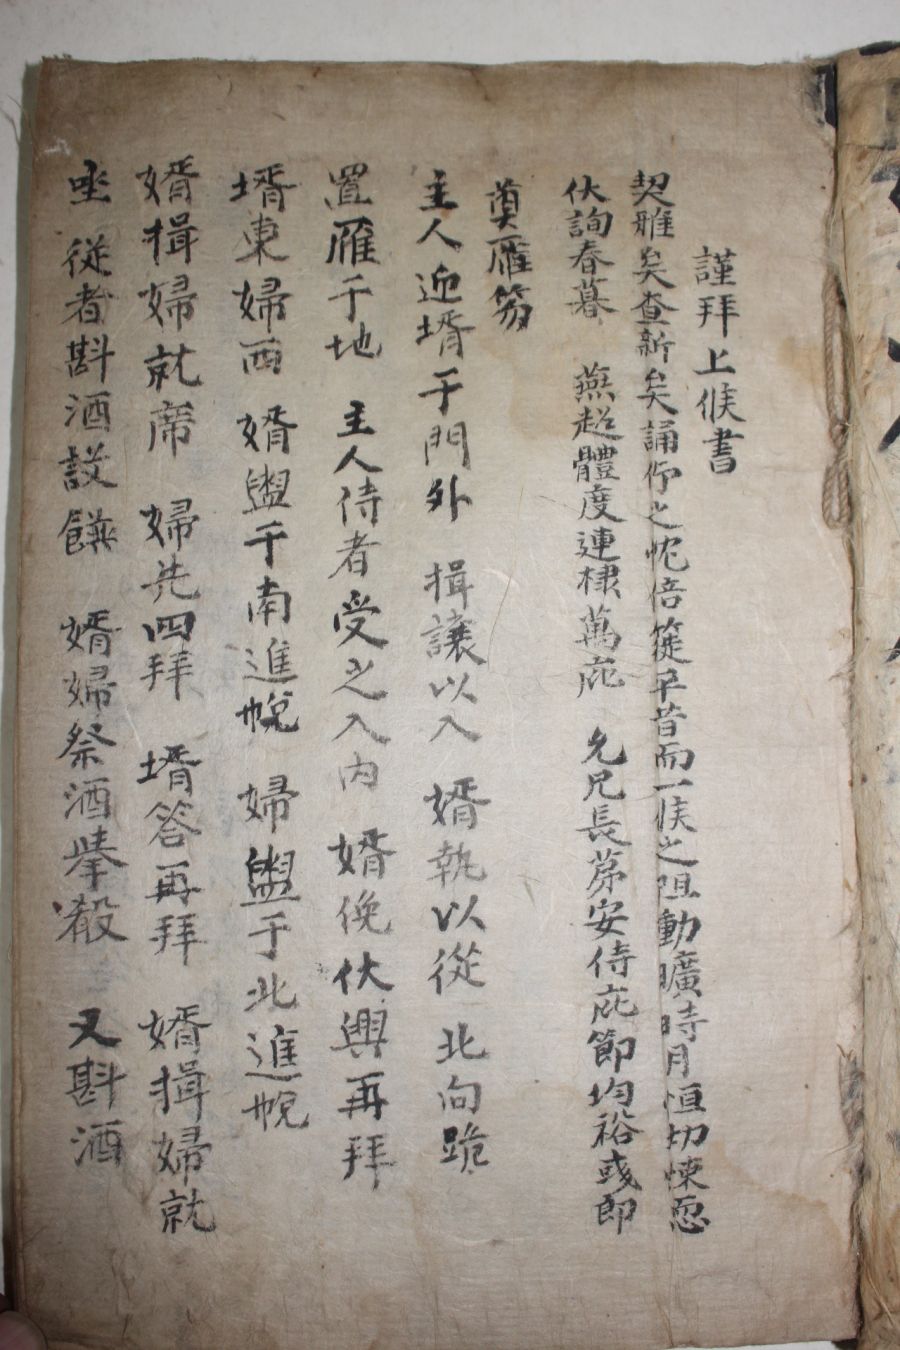 謹拜上候書
契雅矣查新矣誦仰之忱倍簁平昔而一候之阻動曠時月恒切悚恧
伏詢春暮 燕超體度連棣萬庇 允兄長苐安侍庇節均裕彧即
奠雁笏
主人迎壻于門外 揖讓以入 婿執以從 北向跪
置雁于地 主人侍者受之入內 婿俛伏興再拜
壻東婦西 婿盥于南進帨 婦盥于北進帨
婿揖婦就席 婦先四拜 壻答再拜 婿揖婦就
坐 從者斟酒設饌 婿婦祭酒擧殽 又斟酒